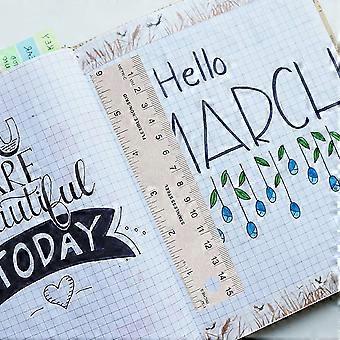 U
ARE
beautiful
TODAY
Hello
MARCH
FLEXIBLE
STAINLESS STEEL
6
5
4
3
2
1
1 2 3 4 5 6 7 8 9 10 11 12 13 14 15